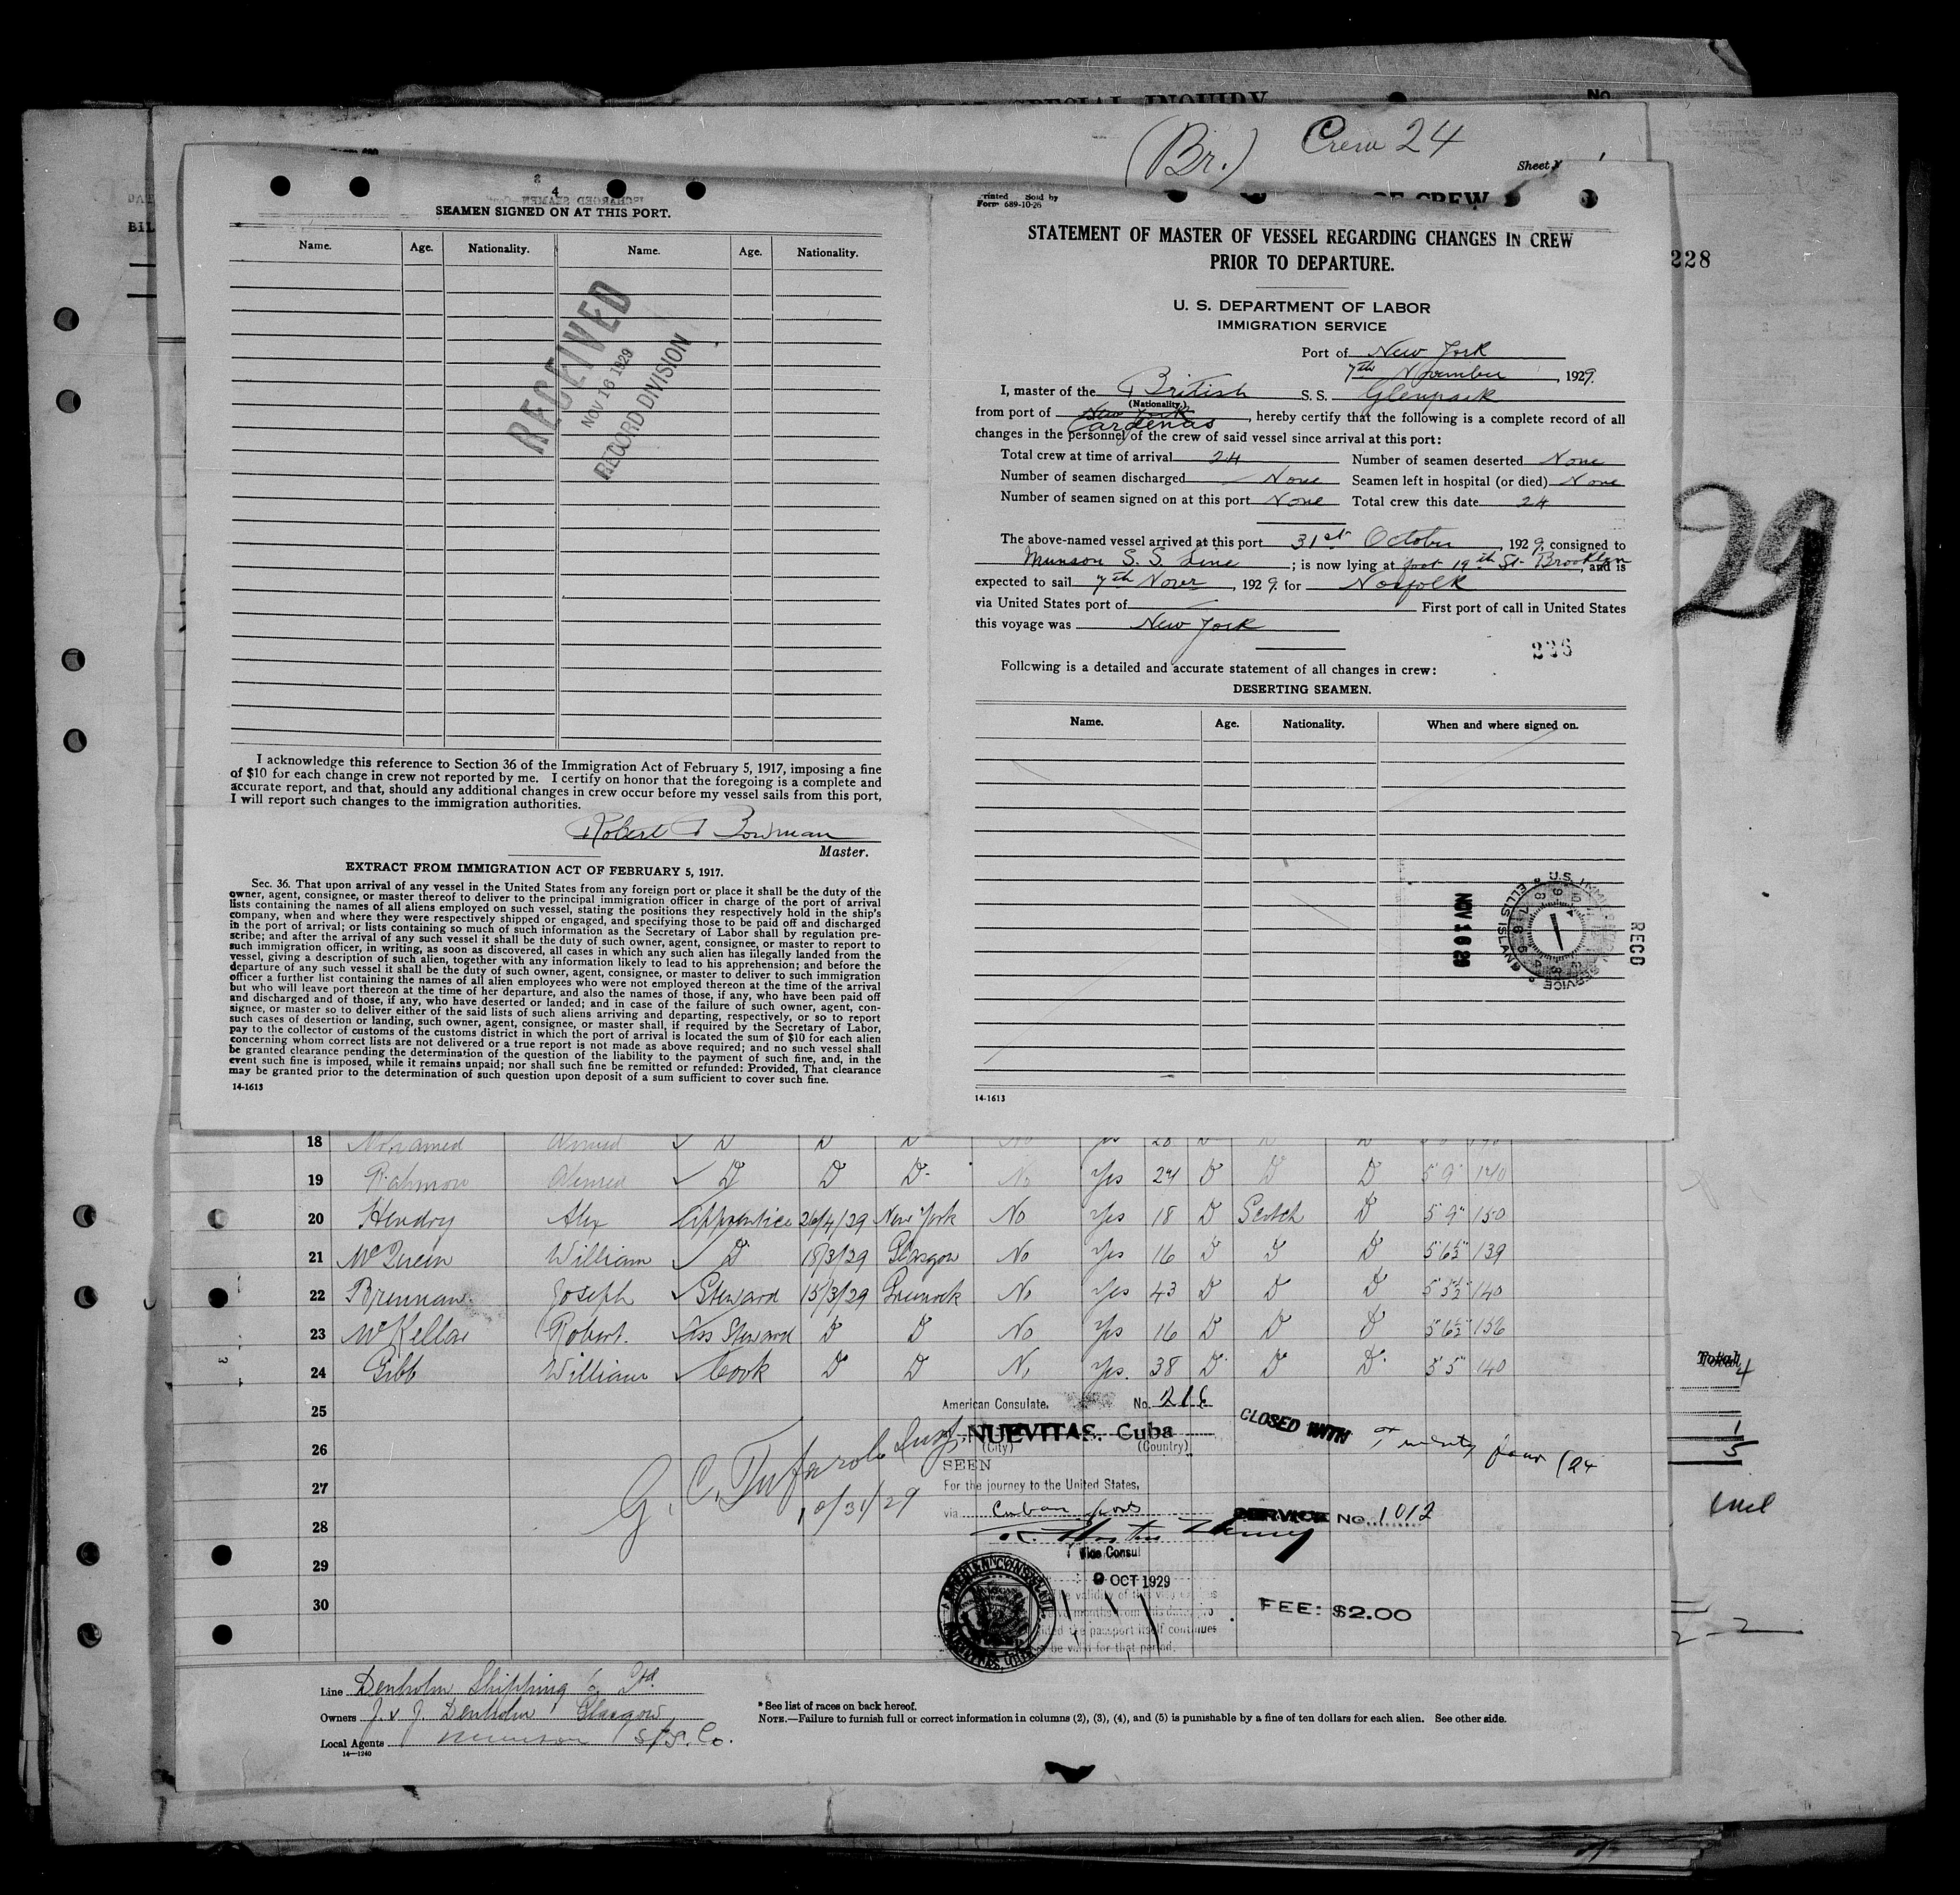 SPECIAL INQUIRY
No
(Br.) Crew 24
Sheet
OF CREW
4
SEAMEN SIGNED ON AT THIS PORT.
Name. Age. Nationality. Name. Age. Nationality.
RECEIVED
NOV 16 1929
RECORD DIVISION
I acknowledge this reference to Section 36 of the Immigration Act of February 5, 1917, imposing a fine
of $10 for each change in crew not reported by me. I certify on honor that the foregoing is a complete and
accurate report, and that, should any additional changes in crew occur before my vessel sails from this port,
I will report such changes to the immigration authorities.
Robert Bowman
Master.
EXTRACT FROM IMMIGRATION ACT OF FEBRUARY 5, 1917.
Sec. 36. That upon arrival of any vessel in the United States from any foreign port or place it shall be the duty of the
owner, agent, consignee, or master thereof to deliver to the principal immigration officer in charge of the port of arrival
lists containing the names of all aliens employed on such vessel, stating the positions they respectively hold in the ship's
company, when and where they were respectively shipped or engaged, and specifying those to be paid off and discharged
in the port of arrival; or lists containing so much of such information as the Secretary of Labor shall by regulation pre-
scribe; and after the arrival of any such vessel it shall be the duty of such owner, agent, consignee, or master to report to
such immigration officer, in writing, as soon as discovered, all cases in which any such alien has illegally landed from the
vessel, giving a description of such alien, together with any information likely to lead to his apprehension; and before the
departure of any such vessel it shall be the duty of such owner, agent, consignee, or master to deliver to such immigration
officer a further list containing the names of all alien employees who were not employed thereon at the time of the arrival
but who will leave port thereon at the time of her departure, and also the names of those, if any, who have been paid off
and discharged and of those, if any, who have deserted or landed; and in case of the failure of such owner, agent, con-
signee, or master so to deliver either of the said lists of such aliens arriving and departing, respectively, or so to report
such cases of desertion or landing, such owner, agent, consignee, or master shall, if required by the Secretary of Labor,
pay to the collector of customs of the customs district in which the port of arrival is located the sum of $10 for each alien
concerning whom correct lists are not delivered or a true report is not made as above required; and no such vessel shall
be granted clearance pending the determination of the question of the liability to the payment of such fine, and, in the
event such fine is imposed, while it remains unpaid; nor shall such fine be remitted or refunded: Provided, That clearance
may be granted prior to the determination of such question upon deposit of a sum sufficient to cover such fine.
14-1613
Printed Sold by
Form 689-10-26
STATEMENT OF MASTER OF VESSEL REGARDING CHANGES IN CREW
PRIOR TO DEPARTURE.
U. S. DEPARTMENT OF LABOR
IMMIGRATION SERVICE
Port of New York
7th November, 1929.
I, master of the British S. S. Glenpark
(Nationality)
from port of New York Cardenas, hereby certify that the following is a complete record of all
changes in the personnel of the crew of said vessel since arrival at this port:
Total crew at time of arrival 24 Number of seamen deserted None
Number of seamen discharged None Seamen left in hospital (or died) None
Number of seamen signed on at this port None Total crew this date 24
The above-named vessel arrived at this port 31st October, 1929, consigned to
Munson S. S. Line; is now lying at foot 19th St. Brooklyn, and is
expected to sail 7th Novr, 1929. for Norfolk
via United States port of First port of call in United States
this voyage was New York
226
Following is a detailed and accurate statement of all changes in crew:
DESERTING SEAMEN.
Name. Age. Nationality. When and where signed on.
NOV 16 29
U.S. IMMIGRATION SERVICE ELLIS ISLAND
RECD
14-1613
228
29
18 Mohamed Ahmed D D D No Yes 28 D D D
19 Rahmon Ahmed D D D No Yes 24 D D D 5'9" 140
20 Hendry Alex Apprentice 26/4/29 New York No Yes 18 D Scotch D 5'9" 150
21 William D 18/3/29 Glasgow No Yes 16 D D D 5'6½" 139
22 Brennan Joseph Steward 15/3/29 Greenock No Yes 43 D D D 5'5½" 140
23 McKellar Robert. Ass Steward D D No Yes 16 D D D 5'6½" 136
24 Gibb William Cook D D No Yes. 38 D D D 5'5" 140
25
26
27
28
29
30
10/31/29
American Consulate. No. 216
NUEVITAS, Cuba
(City) (Country)
SEEN
For the journey to the United States,
via Cuban ports
Vice Consul
9 OCT 1929
AMERICAN CONSULATE
CLOSED WITH Twenty four (24
SERVICE No. 1012
FEE: $2.00
Total
4
1
5
Line Denholm Shipping Co Ltd.
Owners J. & J. Denholm Glasgow
Local Agents Munson S/S. Co.
14-1240
* See list of races on back hereof.
NOTE.—Failure to furnish full or correct information in columns (2), (3), (4), and (5) is punishable by a fine of ten dollars for each alien. See other side.